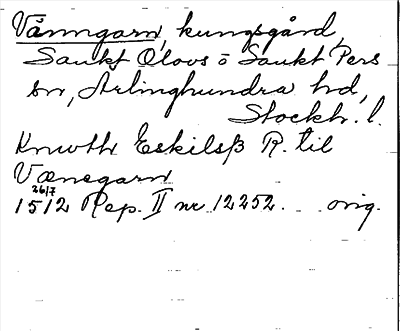 Vänngarn, kungsgård,
Sankt Olovs o Sankt Pers
sn, Ärlinghundra hd,
Stockh. l.
Knuth Eskilsß R. til
Vænegarn
26/7
1512 Rep. II nr 12252. orig.